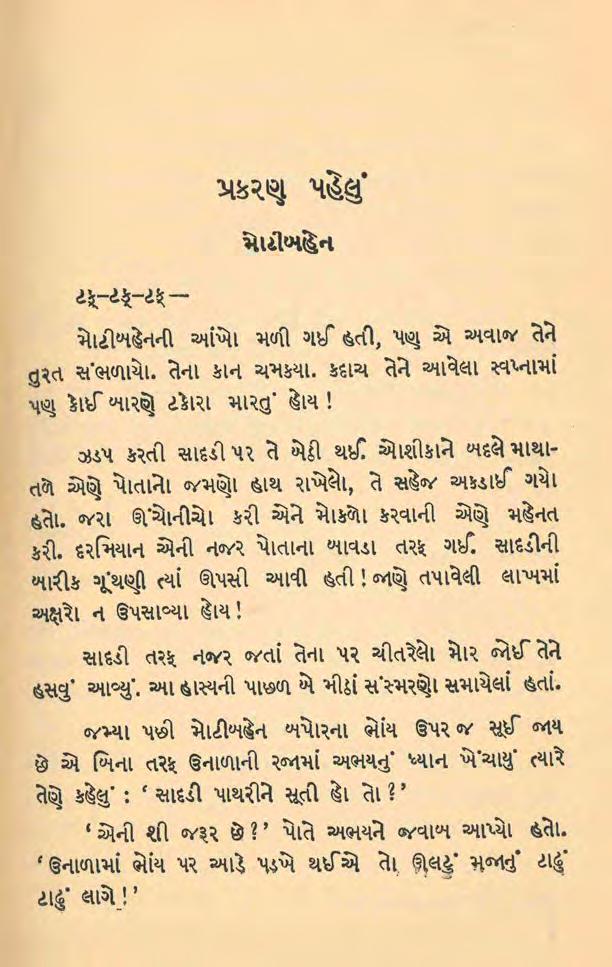 પ્રકરણ પહેલું
મોટીબહેન
ટક્-ટક્-ટક્—
મોટીબહેનની આંખો મળી ગઈ હતી, પણ એ અવાજ તેને
તુરત સંભળાયો. તેના કાન ચમક્યા. કદાચ તેને આવેલા સ્વપ્નામાં
પણ કોઈ બારણે ટકોરા મારતું હોય !
ઝડપ કરતી સાદડી પર તે બેઠી થઈ. ઓશીકાને બદલે માથા-
તળે એણે પોતાનો જમણો હાથ રાખેલો, તે સહેજ અકડાઈ ગયો
હતો. જરા ઊંચોનીચો કરી એને મોકળો કરવાની એણે મહેનત
કરી. દરમિયાન એની નજર પોતાના બાવડા તરફ ગઈ. સાદડીની
બારીક ગૂંથણી ત્યાં ઊપસી આવી હતી ! જાણે તપાવેલી લાખમાં
અક્ષરો ન ઉપસાવ્યા હોય !
સાદડી તરફ નજર જતાં તેના પર ચીતરેલો મોર જોઈ તેને
હસવું આવ્યું. આ હાસ્યની પાછળ બે મીઠાં સંસ્મરણો સમાયેલાં હતાં.
જમ્યા પછી મોટીબહેન બપોરના ભોંય ઉપર જ સૂઈ જાય
છે એ બિના તરફ ઉનાળાની રજામાં અભયનું ધ્યાન ખેંચાયું ત્યારે
તેણે કહેલું : ‘ સાદડી પાથરીને સૂતી હો તો ? ’
‘ એની શી જરૂર છે ? ’ પોતે અભયને જવાબ આપ્યો હતો.
‘ ઉનાળામાં ભોંય પર આડે પડખે થઈએ તો ઊલટું મજાનું ટાઢું
ટાઢું લાગે ! ’